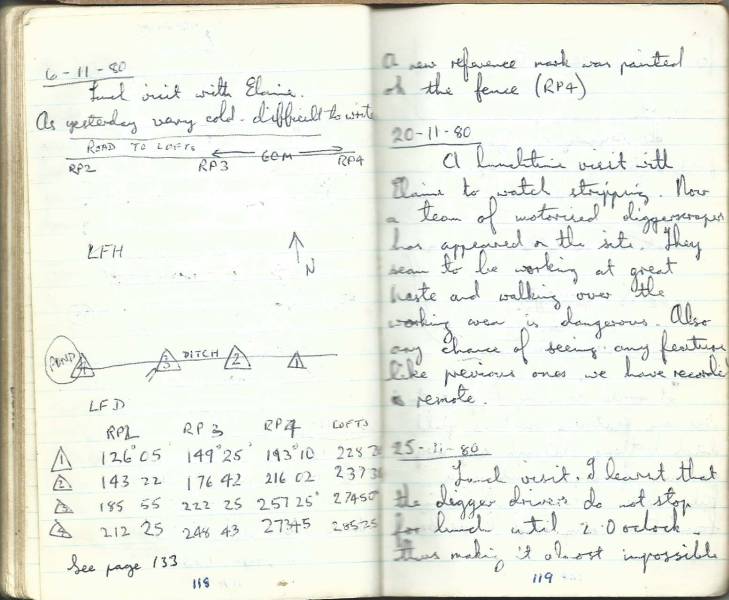 6-11-80
Lunch visit with Elaine.
As yesterday very cold - difficult to write
ROAD TO LOFTS
RP2 RP3 60M RP4
LFH
N
POND 4 3 DITCH 2 1
LFD
RP2 RP3 RP4 LOFTS
1 126° 05 149° 25' 193° 10 228 20
2 143 22 176 42 216 02 237
3 185 55 222 25 257 25' 274 50
4 212 25 248 43 273 45 285 25
See page 133
118
A new reference mark was painted
on the fence (RP4)
20-11-80
A lunchtime visit with
Elaine to watch stripping. Now
a team of motorised diggerscrapers
has appeared on the site. They
seem to be working at great
haste and walking over the
working area is dangerous. Also
any chance of seeing any feature
like previous ones we have recorded
is remote.
25-11-80
Lunch visit. I learnt that
the digger drivers do not stop
for lunch until 2.0 oclock
thus making it almost impossible
119